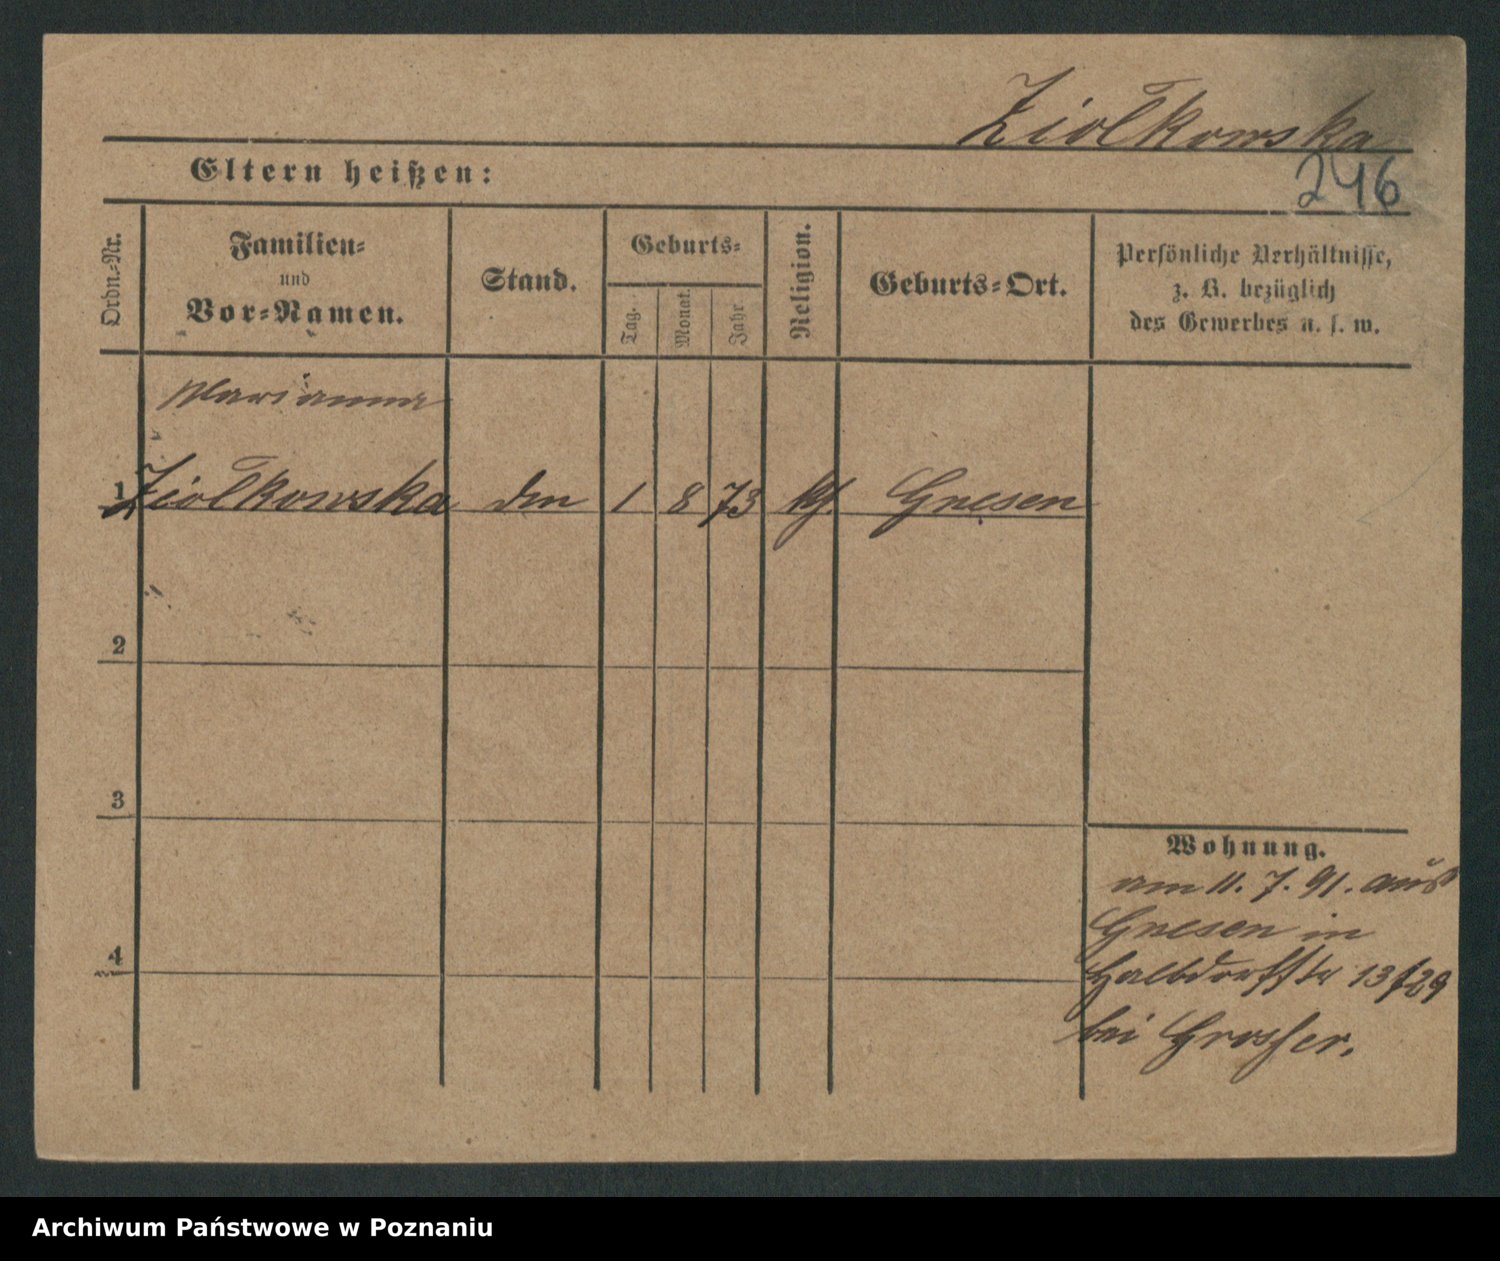 Ziolkowska
246
Eltern heißen:
Ordn.-Nr.
Familien-
und
Vor-Namen.
Stand.
Geburts-
Tag.
Monat.
Jahr.
Religion.
Geburts-Ort.
Persönliche Verhältnisse,
z. B. bezüglich
des Gewerbes u. s. w.
Marianna
1 Ziolkowska den 1 8 73 kf. Gnesen
2
3
4
Wohnung.
am 11. 7. 91. aus
Gnesen in
Halbdorfstr 13/29
bei Grosser.
Archiwum Państwowe w Poznaniu